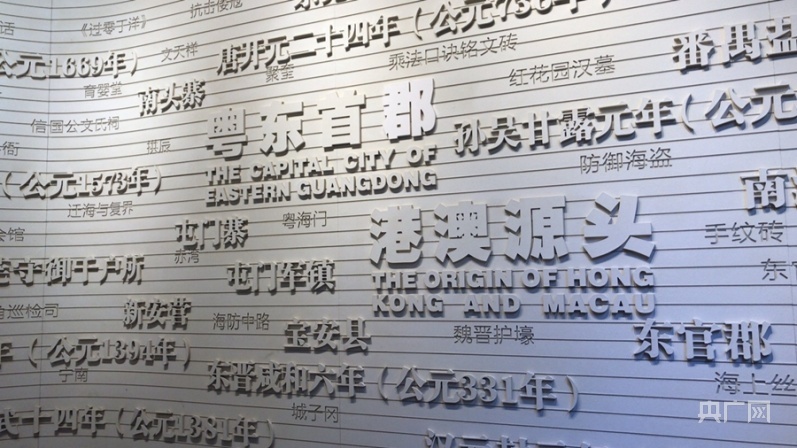 抗击倭寇
《过零丁洋》
公元1669年）
文天祥
唐开元二十四年（公元736年）
乘法口诀铭文砖
番禺盐
育婴堂
南头寨
聚奎
红花园汉墓
信国公文氏祠
拱辰
粤东首郡
THE CAPITAL CITY OF
EASTERN GUANGDONG
孙吴甘露元年（公元
防御海盗
（公元1573年）
迁海与复界
会馆
屯门寨
粤海门
港澳源头
THE ORIGIN OF HONG
KONG AND MACAU
手纹砖
赤湾
守御千户所
屯门军镇
巡检司
新安营
海防中路
宝安县
魏晋护壕
东官郡
年（公元1394年）
宁南
东晋咸和六年（公元331年）
海上丝
十四年（公元1381年）
城子冈
央广网